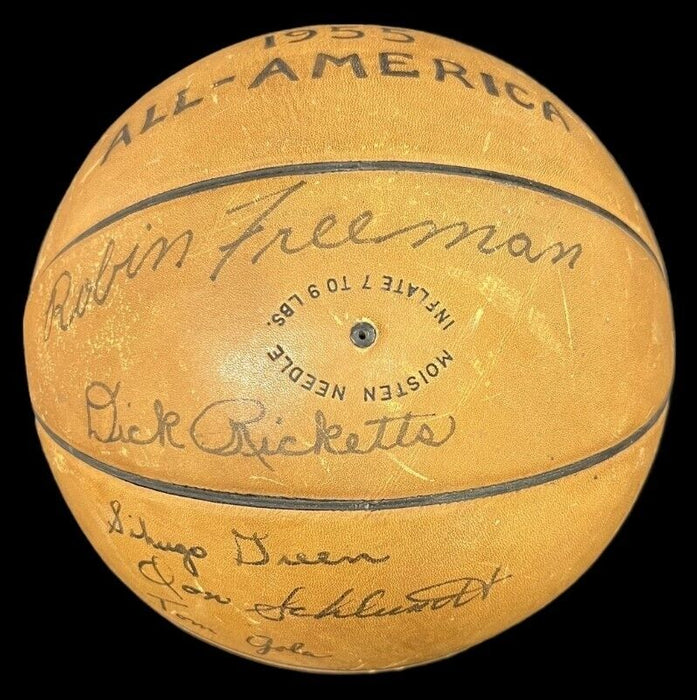 1955
ALL-AMERICA
Robin Freeman
INFLATE 7 TO 9 LBS.
MOISTEN NEEDLE
Dick Ricketts
Sihugo Green
Don Schlundt
Tom Gola